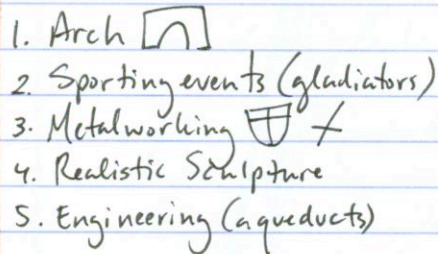 1. Arch
2. Sporting events (gladiators)
3. Metalworking
4. Realistic Sculpture
5. Engineering (aqueducts)